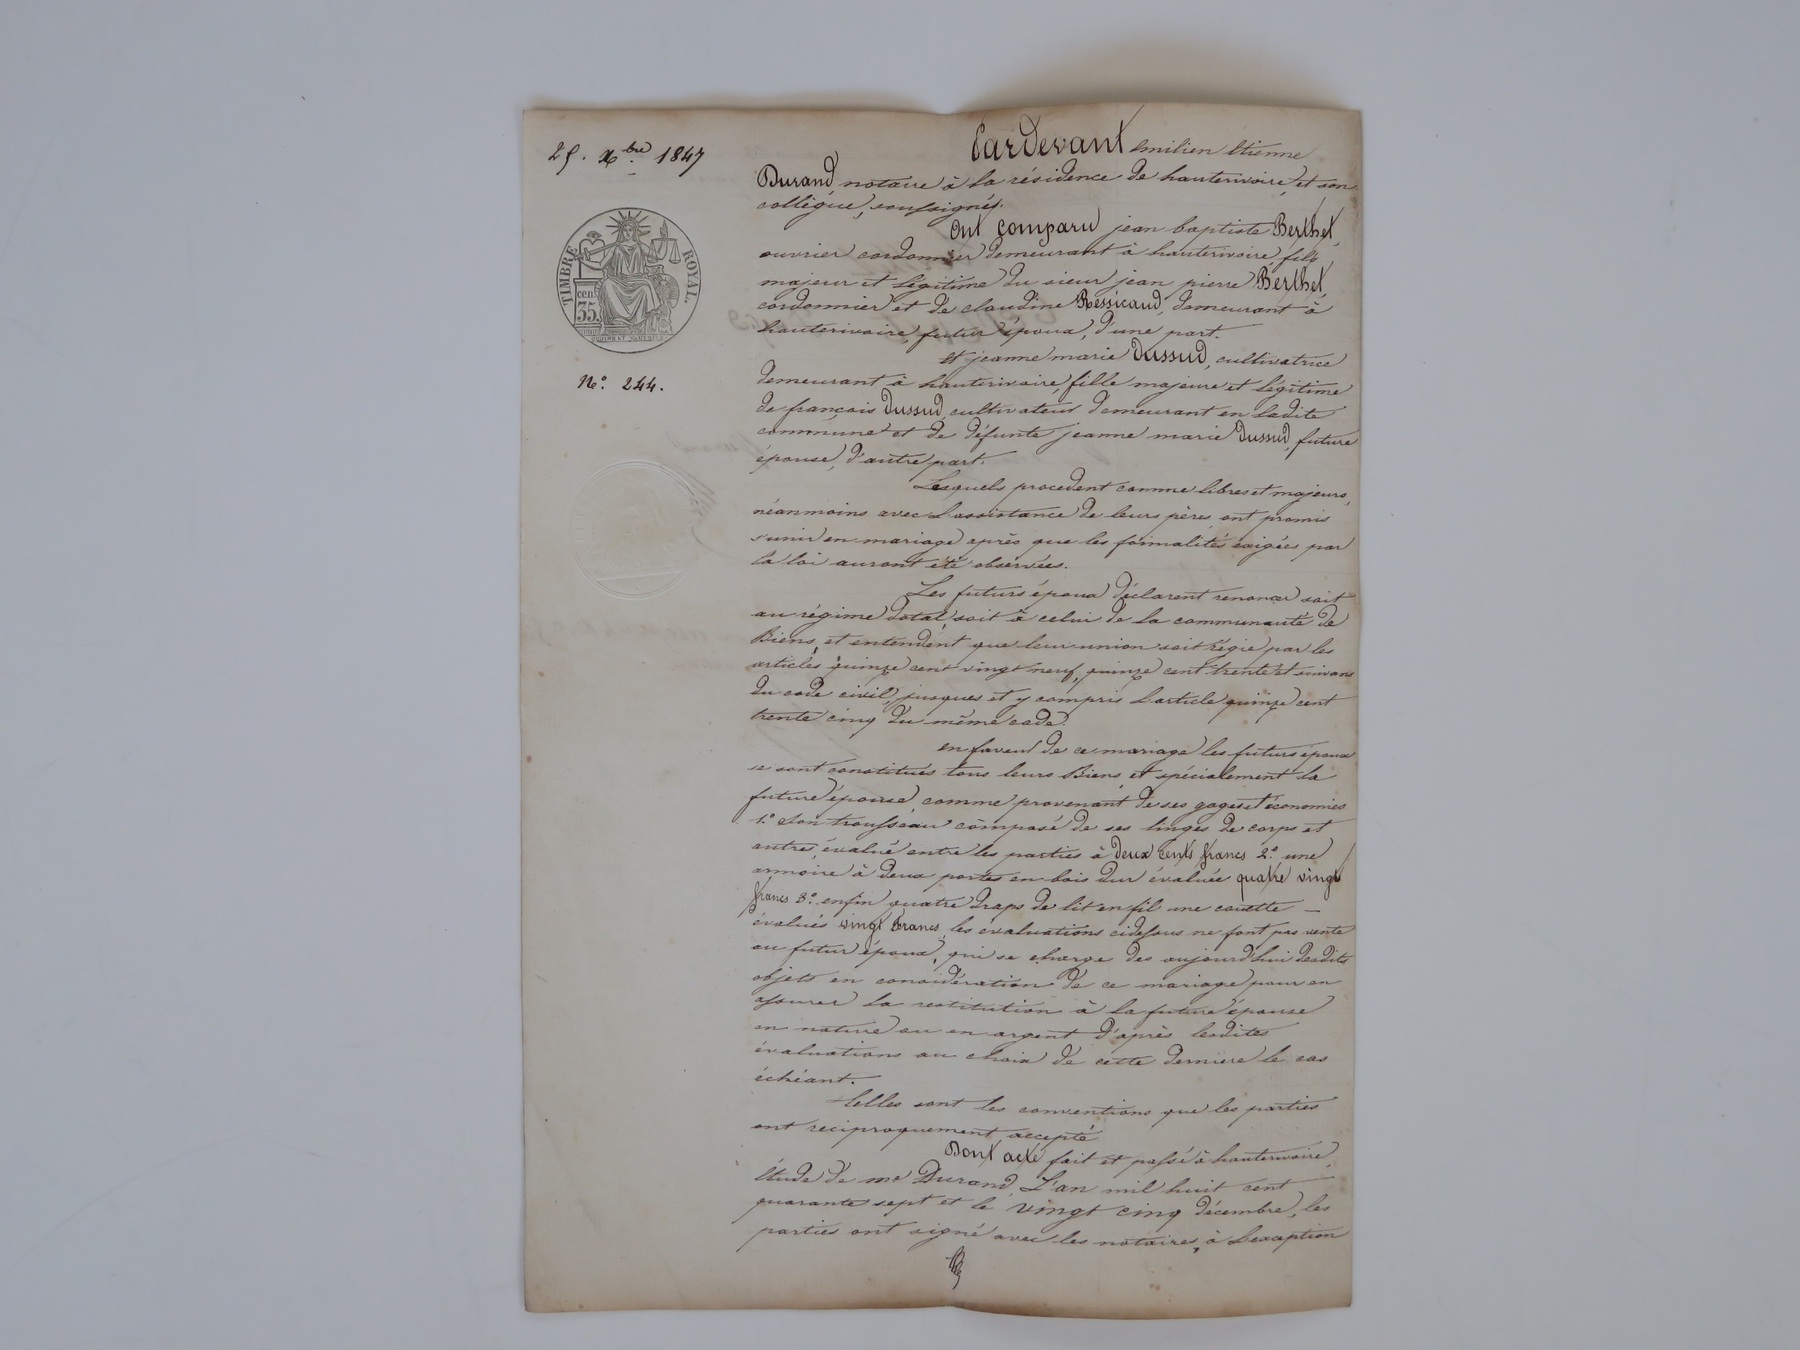 25. Xbre 1847
TIMBRE ROYAL.
cen. 35.
No. 244.
Pardevant émilien étienne
Durand, notaire à la résidence de hauterivoire, et son
collègue, soussignés.
Ont comparu jean baptiste Berthet,
ouvrier cordonnier demeurant à hauterivoire, fils
majeur et légitime du sieur jean pierre Berthet,
cordonnier et de claudine Ressicaud, demeurant à
hauterivoire, futur époux, d'une part.
et jeanne marie Dussud, cultivatrice
demeurant à hauterivoire, fille majeure et légitime
de françois Dussud, cultivateur demeurant en ladite
commune et de défunte jeanne marie Dussud, future
épouse, d'autre part.
Lesquels procedent comme libres et majeurs,
néanmoins avec L'assistance de leurs pères, ont promis
s'unir en mariage après que les formalités exigées par
la loi auront été observées.
Les futurs époux déclarent renoncer soit
au régime dotal, soit à celui de la communauté de
Biens, et entendent que leur union soit régie par les
articles quinze cent vingt neuf, quinze cent trente et suivans
du code civil, jusques et y compris L'article quinze cent
trente cinq du même code.
en faveur de ce mariage les futurs époux
se sont constitués tous leurs Biens, et spécialement la
future épouse, comme provenant de ses gages et économies
1.o Son trousseau composé de ses linges de corps et
autres, évalué entre les parties à deux cents francs 2.o une
armoire à deux portes en bois dur évaluée quatre vingt
francs 3.o enfin quatre draps de lit en fil une couette —
évalués vingt francs, les évaluations cidessus ne font pas vente
au futur époux, qui se charge des aujourd'hui desdits
objets en considération de ce mariage pour en
assurer la restitution à la future épouse
en nature ou en argent d'après lesdites
évaluations au choix de cette derniere le cas
échéant.
telles sont les conventions que les parties
ont reciproquement accepté
Dont acte fait et passé à hauterivoire,
étude de me Durand, L'an mil huit cent
quarante sept et le vingt cinq décembre, les
parties ont signé avec les notaires, à L'exception